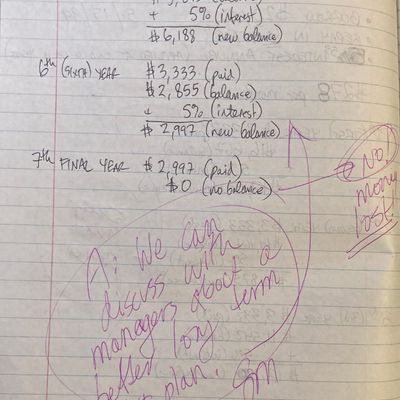 + 5% (interest)
$6,188 (new balance)
6th (sixth) YEAR $3,333 (paid)
$2,855 (balance)
+ 5% (interest)
$2,997 (new balance)
7th FINAL YEAR $2,997 (paid)
$0 (no balance)
NO!
money
lost!
A: We can
discuss with
managers about a
better long term
plan. SM